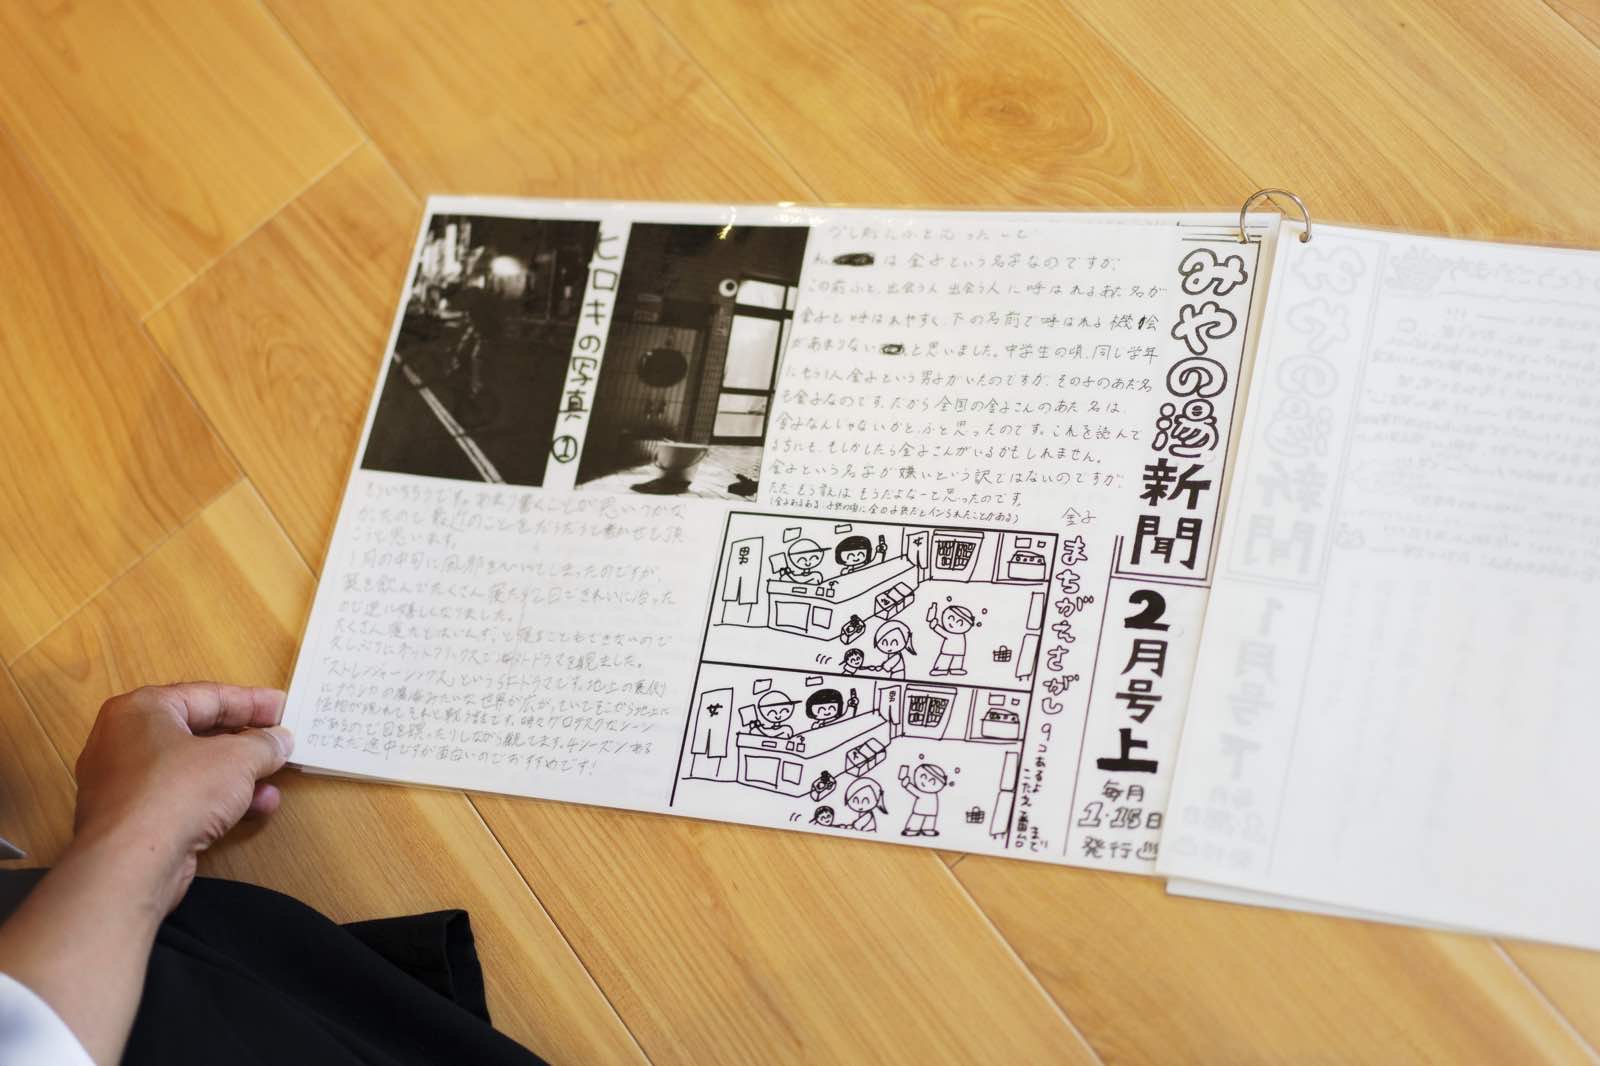 みやの湯新聞
2月号上
毎月
1・15日
発行
少し前にふと思ったこと
私 は金子という名字なのですが、
この前ふと、出会う人出会う人に呼ばれるあだ名が
金子と呼ばれやすく、下の名前で呼ばれる機会
があまりない と思いました。中学生の頃、同じ学年
にもう1人金子という男子がいたのですが、その子のあだ名
も金子なのです。だから全国の金子さんのあだ名は
金子なんじゃないかと、ふと思ったのです。これを読んで
る方にも、もしかしたら金子さんがいるかもしれません。
金子という名字が嫌いという訳ではないのですが、
ただ、もう言えば もうだよなーと思ったのです。
金子
ヒロキの写真①
もういちろうです。あまり書くことが思いつかな
かったので最近のことをだらだらと書かせて頂
こうと思います。
1月の中旬に風邪をひいてしまったのですが、
薬を飲んでたくさん寝たら2日できれいに治った
ので逆に嬉しくなりました。
たくさん寝たとはいえ、ずっと寝ることもできないので
久しぶりにネットフリックスで海外ドラマを観ました。
「ストレンジャーシングス」というSFドラマです。地上の裏側
にナウシカの腐海みたいな世界が広がっていてそこから地上に
怪物が現れてそれと戦う話です。時々グロテスクなシーン
があるので目を瞑ったりしながら観てます。4シーズンある
のでまだ途中ですが面白いのでおすすめです!
まちがえさがし
9コあるよ
こたえ番台まで
男
女
女
男